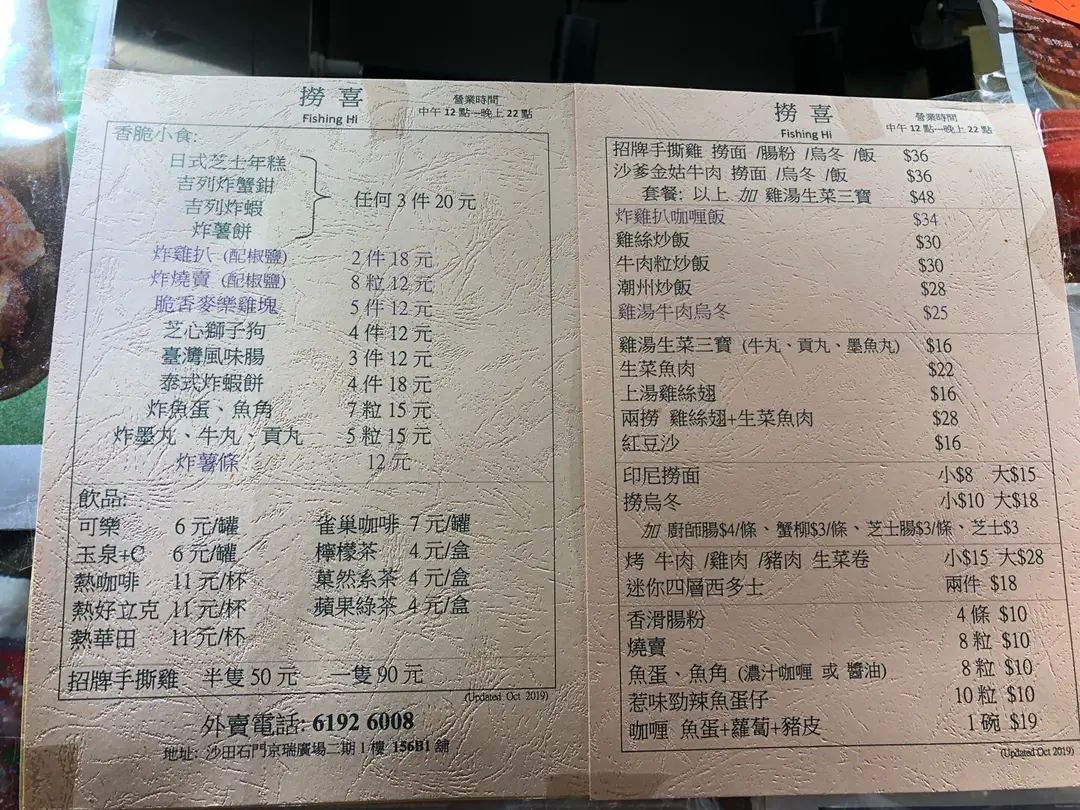 撈喜
Fishing Hi
營業時間
中午 12 點---晚上 22 點
香脆小食:
日式芝士年糕
吉列炸蟹鉗
吉列炸蝦
炸薯餅
任何 3 件 20 元
炸雞扒 (配椒鹽) 2 件 18 元
炸燒賣 (配椒鹽) 8 粒 12 元
脆香麥樂雞塊 5 件 12 元
芝心獅子狗 4 件 12 元
臺灣風味腸 3 件 12 元
泰式炸蝦餅 4 件 18 元
炸魚蛋、魚角 7 粒 15 元
炸墨丸、牛丸、貢丸 5 粒 15 元
炸薯條 12 元
飲品:
可樂 6 元/罐 雀巢咖啡 7 元/罐
玉泉+C 6 元/罐 檸檬茶 4 元/盒
熱咖啡 11 元/杯 菓然系茶 4 元/盒
熱好立克 11 元/杯 蘋果綠茶 4 元/盒
熱華田 11 元/杯
招牌手撕雞 半隻 50 元 一隻 90 元
(Updated Oct 2019)
外賣電話: 6192 6008
地址: 沙田石門京瑞廣場二期 1 樓 156B1 舖
撈喜
Fishing Hi
營業時間
中午 12 點---晚上 22 點
招牌手撕雞 撈面 /腸粉 /烏冬 /飯 $36
沙爹金菇牛肉 撈面 /烏冬 /飯 $36
套餐: 以上 加 雞湯生菜三寶 $48
炸雞扒咖喱飯 $34
雞絲炒飯 $30
牛肉粒炒飯 $30
潮州炒飯 $28
雞湯牛肉烏冬 $25
雞湯生菜三寶 (牛丸、貢丸、墨魚丸) $16
生菜魚肉 $22
上湯雞絲翅 $16
兩撈 雞絲翅+生菜魚肉 $28
紅豆沙 $16
印尼撈面 小$8 大$15
撈烏冬 小$10 大$18
加 廚師腸$4/條、蟹柳$3/條、芝士腸$3/條、芝士$3
烤 牛肉 /雞肉 /豬肉 生菜卷 小$15 大$28
迷你四層西多士 兩件 $18
香滑腸粉 4 條 $10
燒賣 8 粒 $10
魚蛋、魚角 (濃汁咖喱 或 醬油) 8 粒 $10
惹味勁辣魚蛋仔 10 粒 $10
咖喱 魚蛋+蘿蔔+豬皮 1 碗 $19
(Updated Oct 2019)